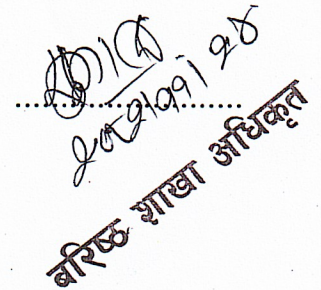 २०८१।११।२४
बरिष्ठ शाखा अधिकृत